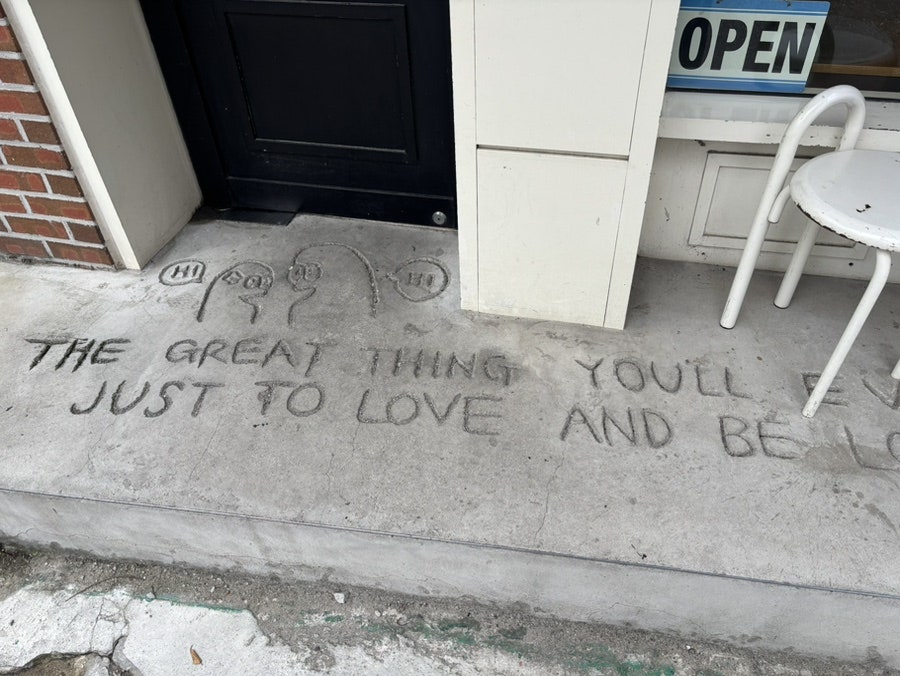 OPEN
HI HI
THE GREAT THING YOU'LL EV
JUST TO LOVE AND BE LO